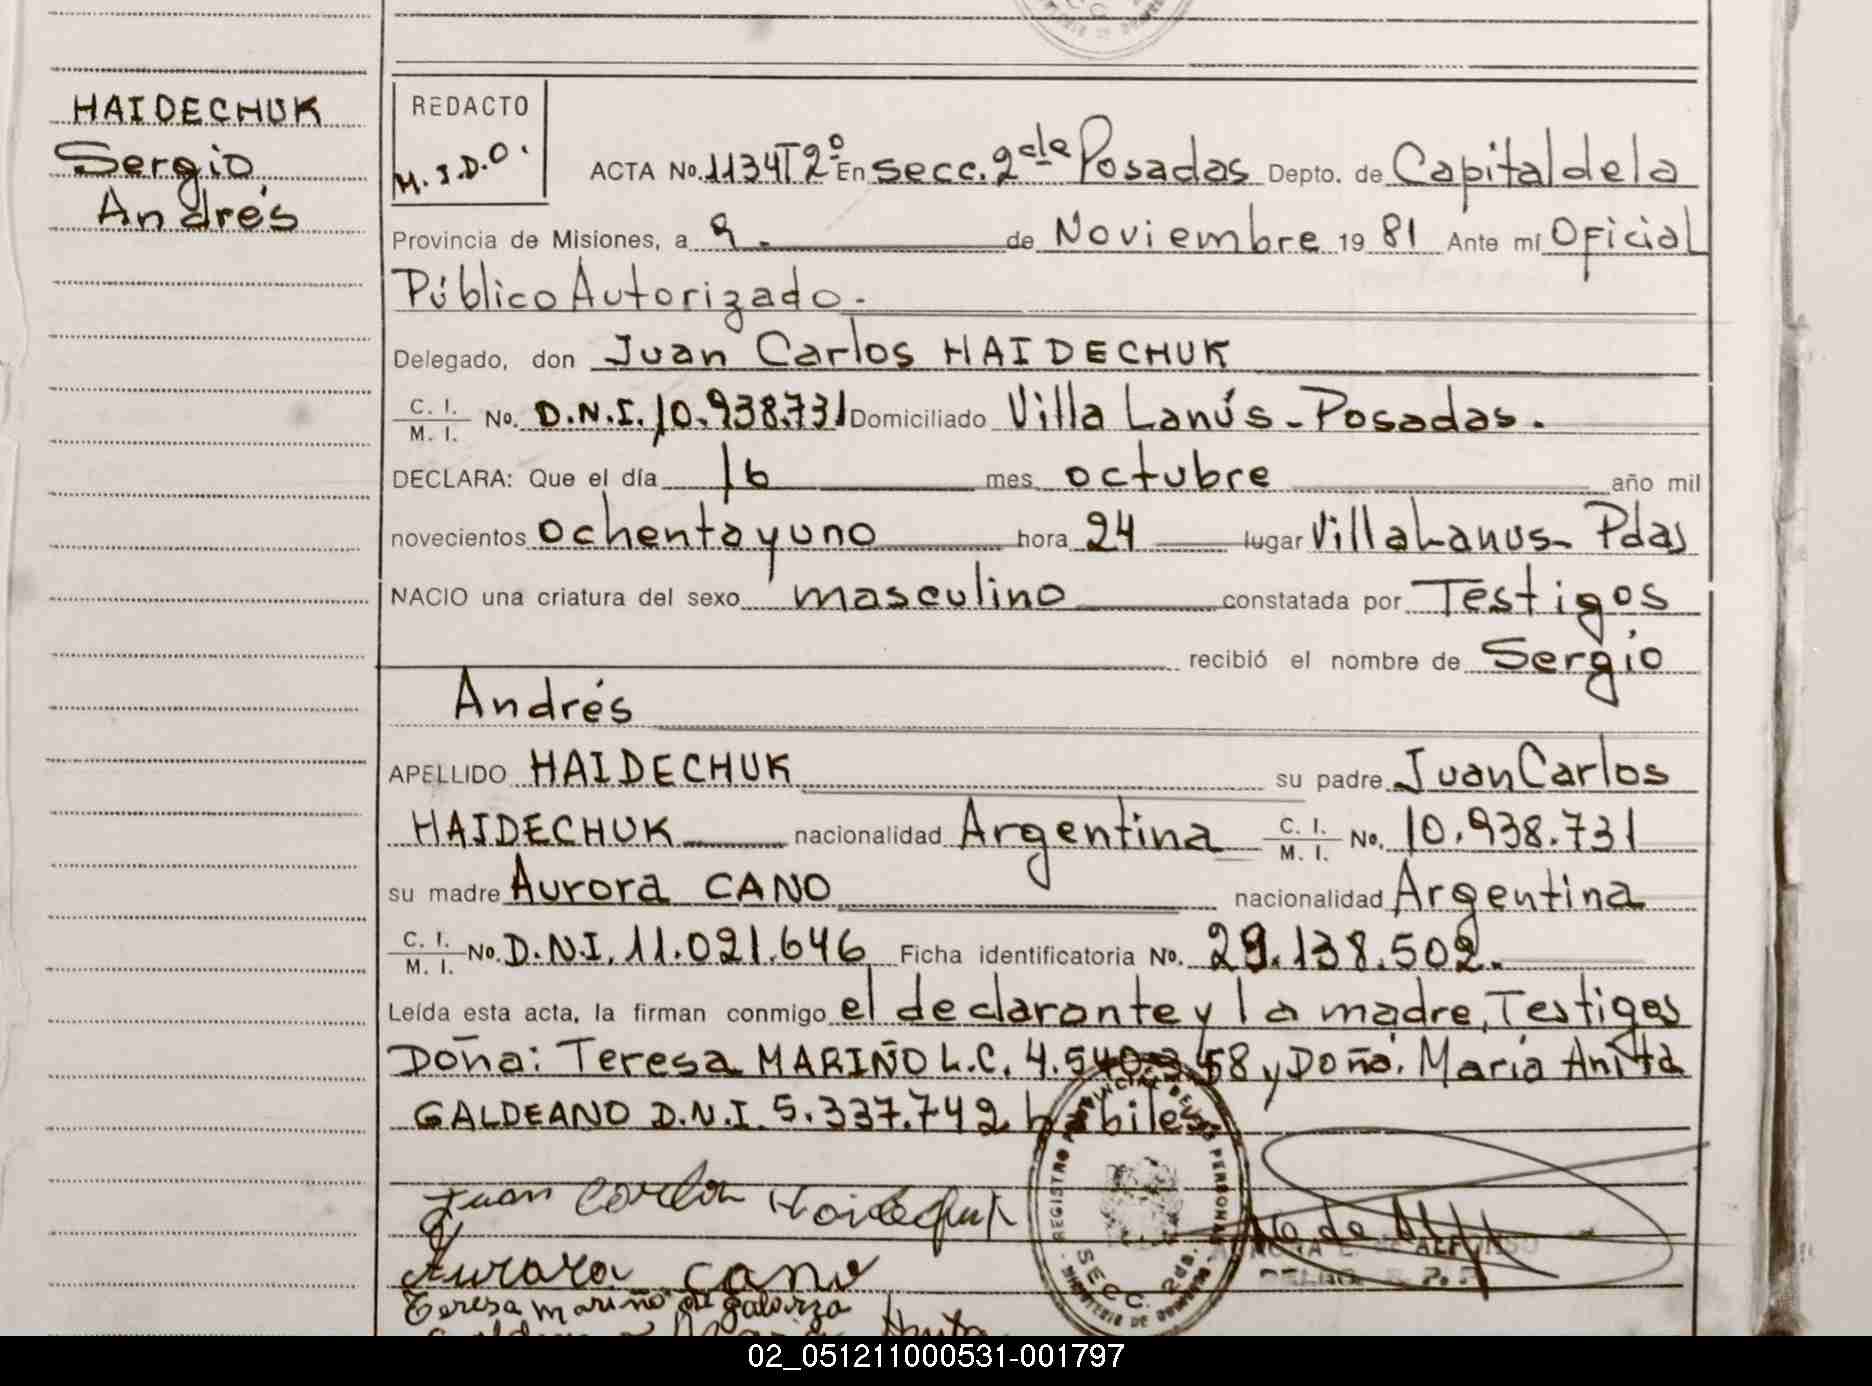 HAIDECHUK
Sergio
Andrés
REDACTO
M.J.D.O.
ACTA No. 1134 T 2º En secc. 2da Posadas Depto. de Capital de la
Provincia de Misiones, a 9.- de Noviembre 19 81 Ante mí Oficial
Público Autorizado.-
Delegado, don Juan Carlos HAIDECHUK
C. I. / M. I. No. D.N.I. 10.938.731 Domiciliado Villa Lanús - Posadas.
DECLARA: Que el día 16 mes octubre año mil
novecientos ochenta y uno hora 24 lugar Villa Lanus - Pdas
NACIO una criatura del sexo masculino constatada por Testigos
recibió el nombre de Sergio
Andrés
APELLIDO HAIDECHUK su padre Juan Carlos
HAIDECHUK nacionalidad Argentina C. I. / M. I. No. 10.938.731
su madre Aurora CANO nacionalidad Argentina
C. I. / M. I. No. D.N.I. 11.021.646 Ficha identificatoria No. 29.138.502.
Leída esta acta, la firman conmigo el declarante y la madre, Testigos
Doña: Teresa MARIÑO L.C. y Doña: María Anita
GALDEANO D.N.I. 5.337.742 hábiles
Juan Carlos Haidechuk
Aurora Cano
Teresa mariño de galarza
Anita
REGISTRO PROVINCIAL DE LAS PERSONAS
SECC. 2da.
MINISTERIO DE GOBIERNO
de ALFONSO
02_051211000531-001797